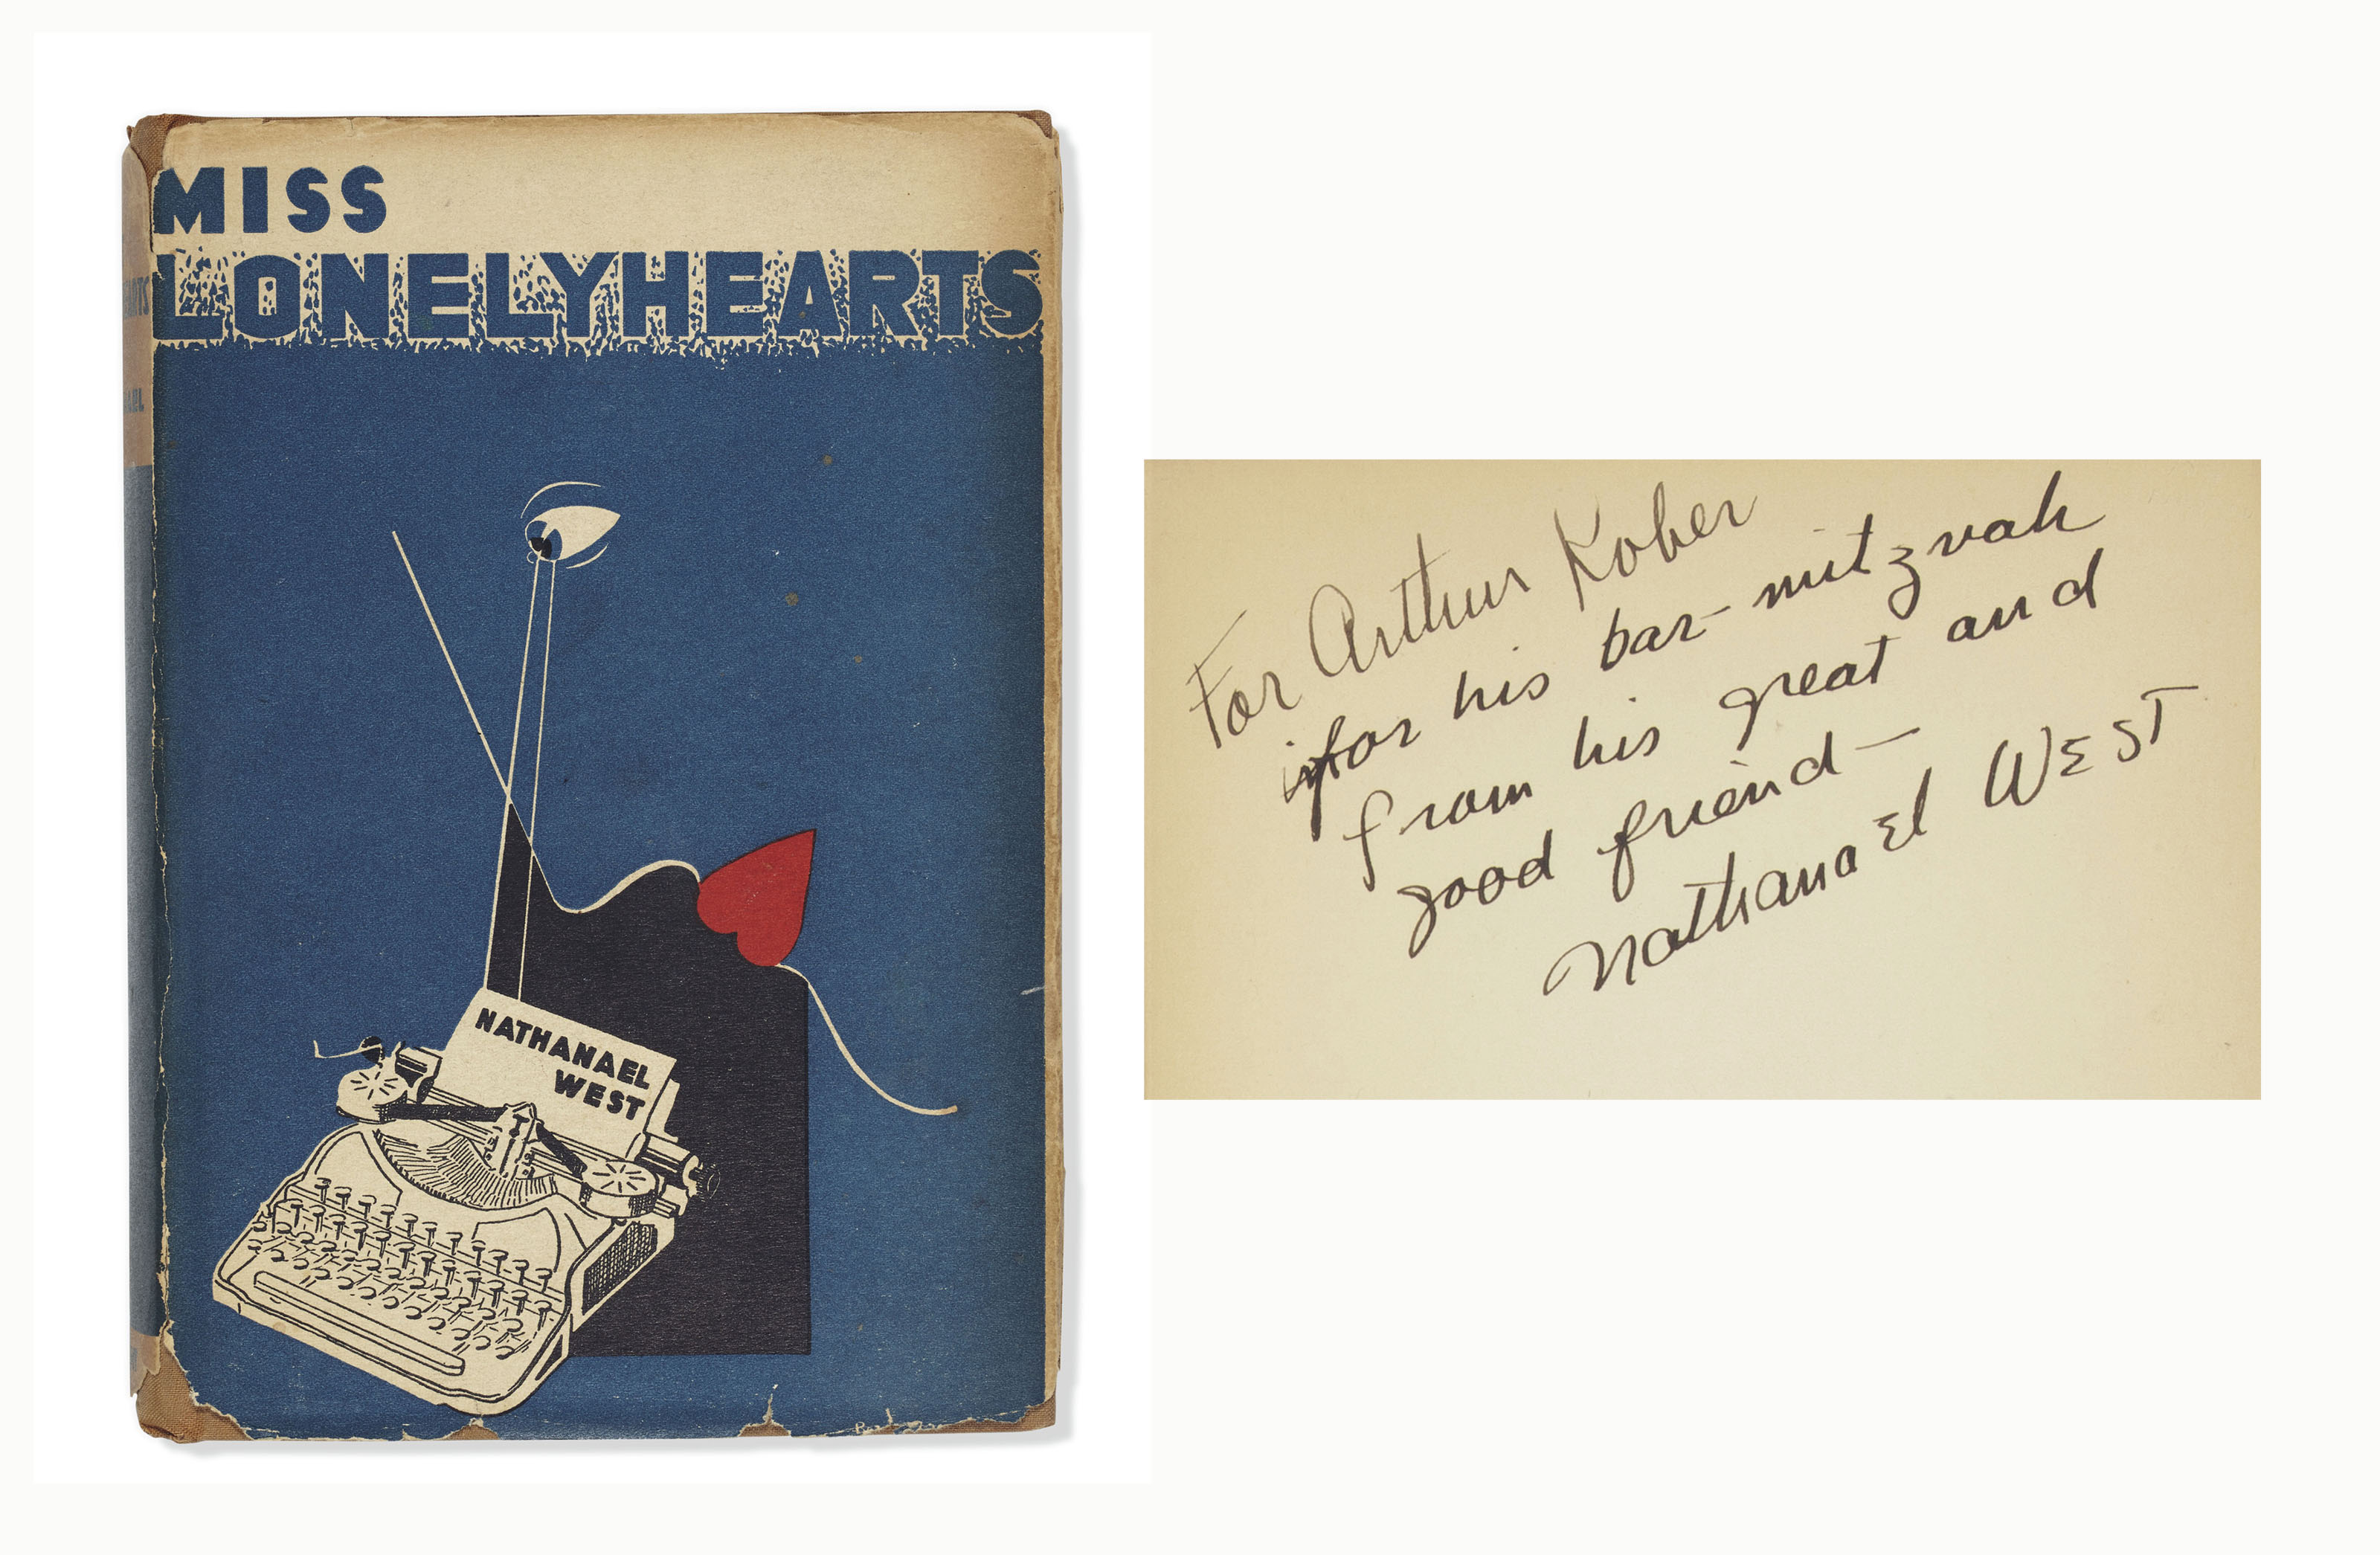 MISS
LONELYHEARTS
NATHANAEL
WEST
For Arthur Kober
for his bar-mitzvah
from his great and
good friend—
Nathanael WEST